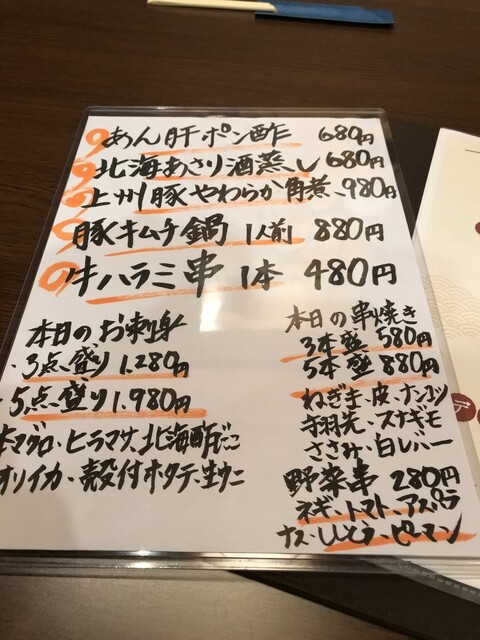 あん肝ポン酢 680円
北海あさり酒蒸し 680円
上州豚やわらか角煮 980円
豚キムチ鍋 1人前 880円
牛ハラミ串 1本 480円
本日のお刺身
3点盛り 1,280円
5点盛り 1,980円
本マグロ・ヒラマサ、北海酢だこ
オリイカ・殻付ホタテ、生ウニ
本日の串焼き
3本盛 580円
5本盛 880円
ねぎま、皮、ナンコツ
手羽先、スナギモ
ささみ、白レバー
野菜串 280円
ネギ、トマト、アスパラ
ナス・ししとう、ピーマン